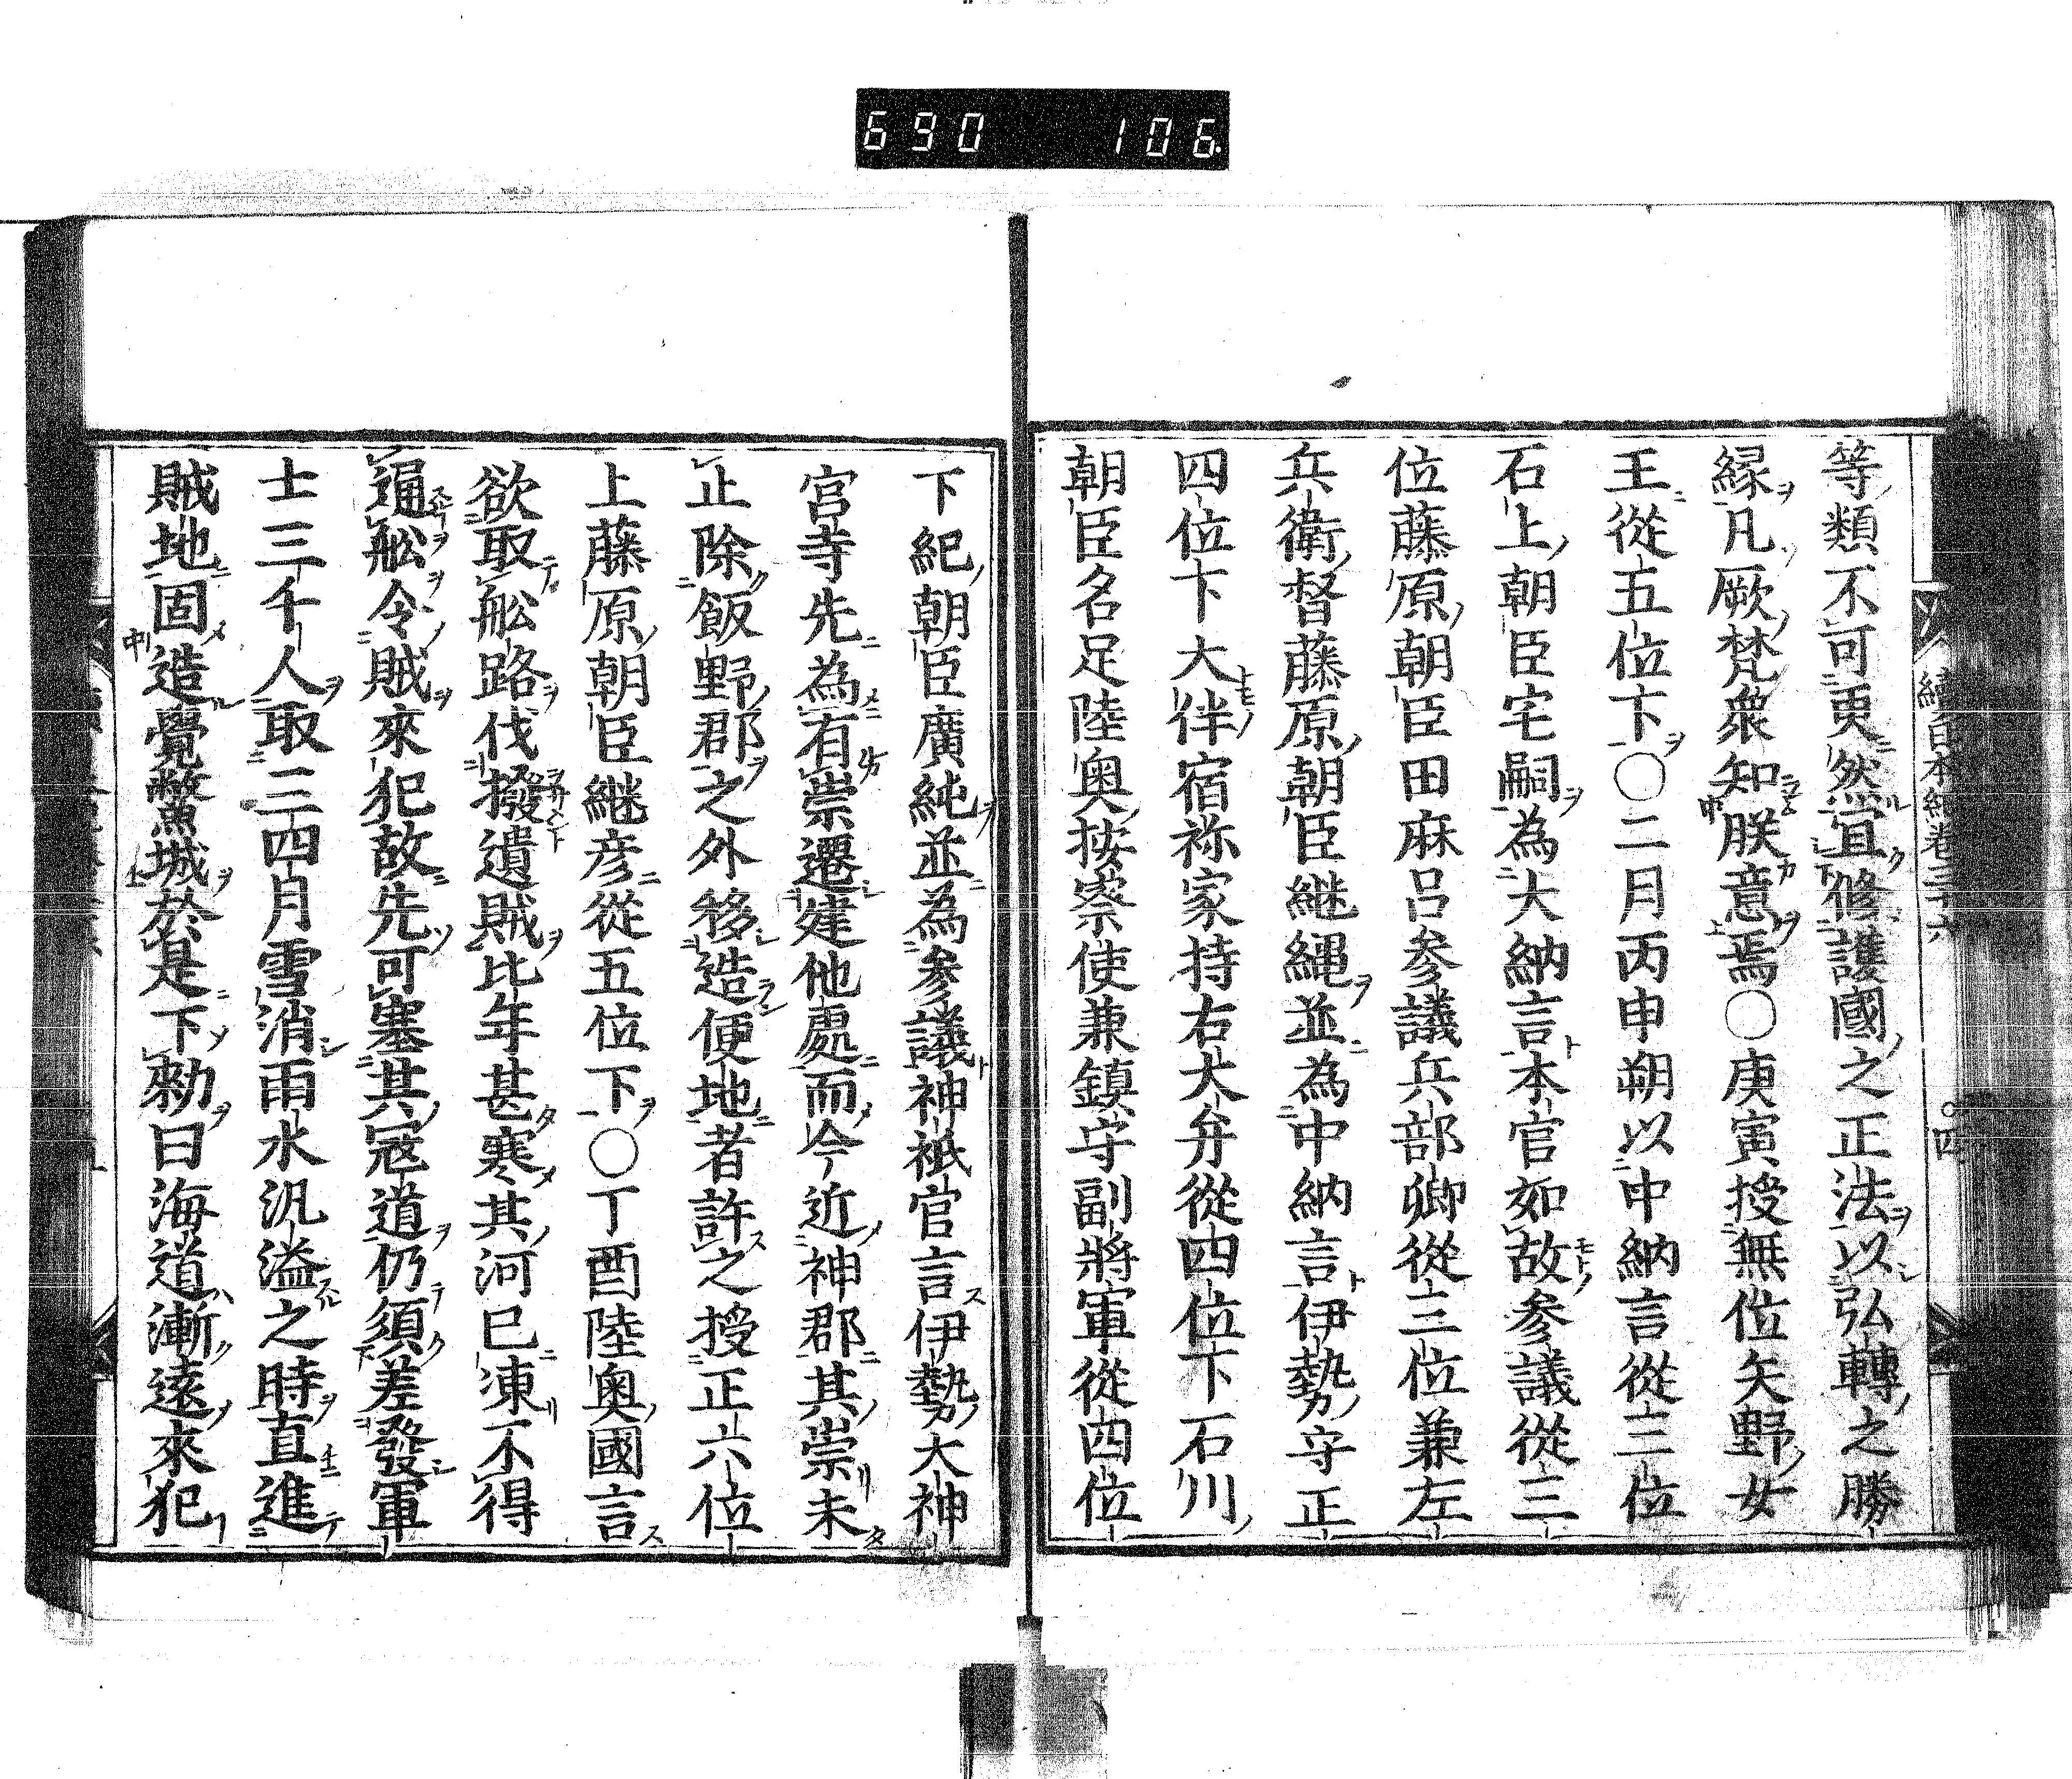 690 106
續日本紀卷三十六
四
等類不可更然宜修護國之正法以弘轉之勝
縁凡厥梵衆知朕意焉○庚寅授無位矢野女
王從五位下○二月丙申朔以中納言從三位
石上朝臣宅嗣為大納言本官如故参議從三
位藤原朝臣田麻呂参議兵部卿從三位兼左
兵衛督藤原朝臣継縄並為中納言伊勢守正
四位下大伴宿祢家持右大弁從四位下石川
朝臣名足陸奥按察使兼鎮守副將軍從四位
下紀朝臣廣純並為参議神祇官言伊勢大神
宮寺先為有祟遷建他處而今近神郡其祟未
止除飯野郡之外移造便地者許之授正六位
上藤原朝臣継彦從五位下○丁酉陸奥國言
欲取舩路伐撥遺賊比年甚寒其河已凍不得
通舩令賊來犯故先可塞其冦道仍須差發軍
士三千人取三四月雪消雨水汎溢之時直進
賊地固造覺鱉城於是下勑曰海道漸遠來犯